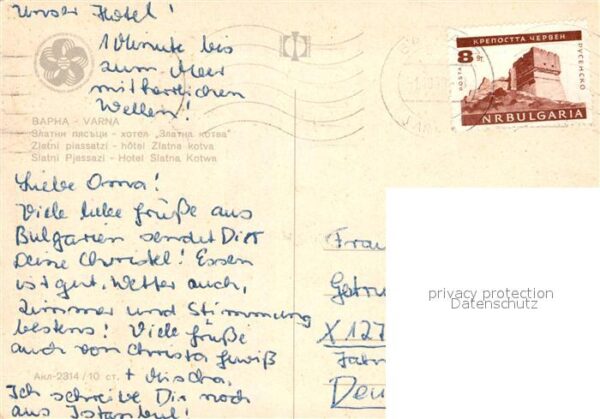 Unser Hotel!
1 Minute bis
zum Meer
mit herrlichen
Wellen!
КРЕПОСТТА ЧЕРВЕН
РУСЕНСКО
8 ст.
ПОЩА
NR BULGARIA
ВАРНА - VARNA
Златни пясъци - хотел „Златна котва"
Zlatni piassatzi - hôtel Zlatna kotva
Slatni Pjassazi - Hotel Slatna Kotwa
Liebe Oma!
Viele liebe Grüße aus
Bulgarien sendet Dir
Deine Christel! Essen
ist gut, Wetter auch,
Zimmer und Stimmung
bestens! Viele Grüße
auch von Christa
+ Mischa.
Ich schreibe Dir noch
aus Istanbul!
Акл-2314/10 ст.
Frau
Gertru
X 127
Deu
privacy protection
Datenschutz